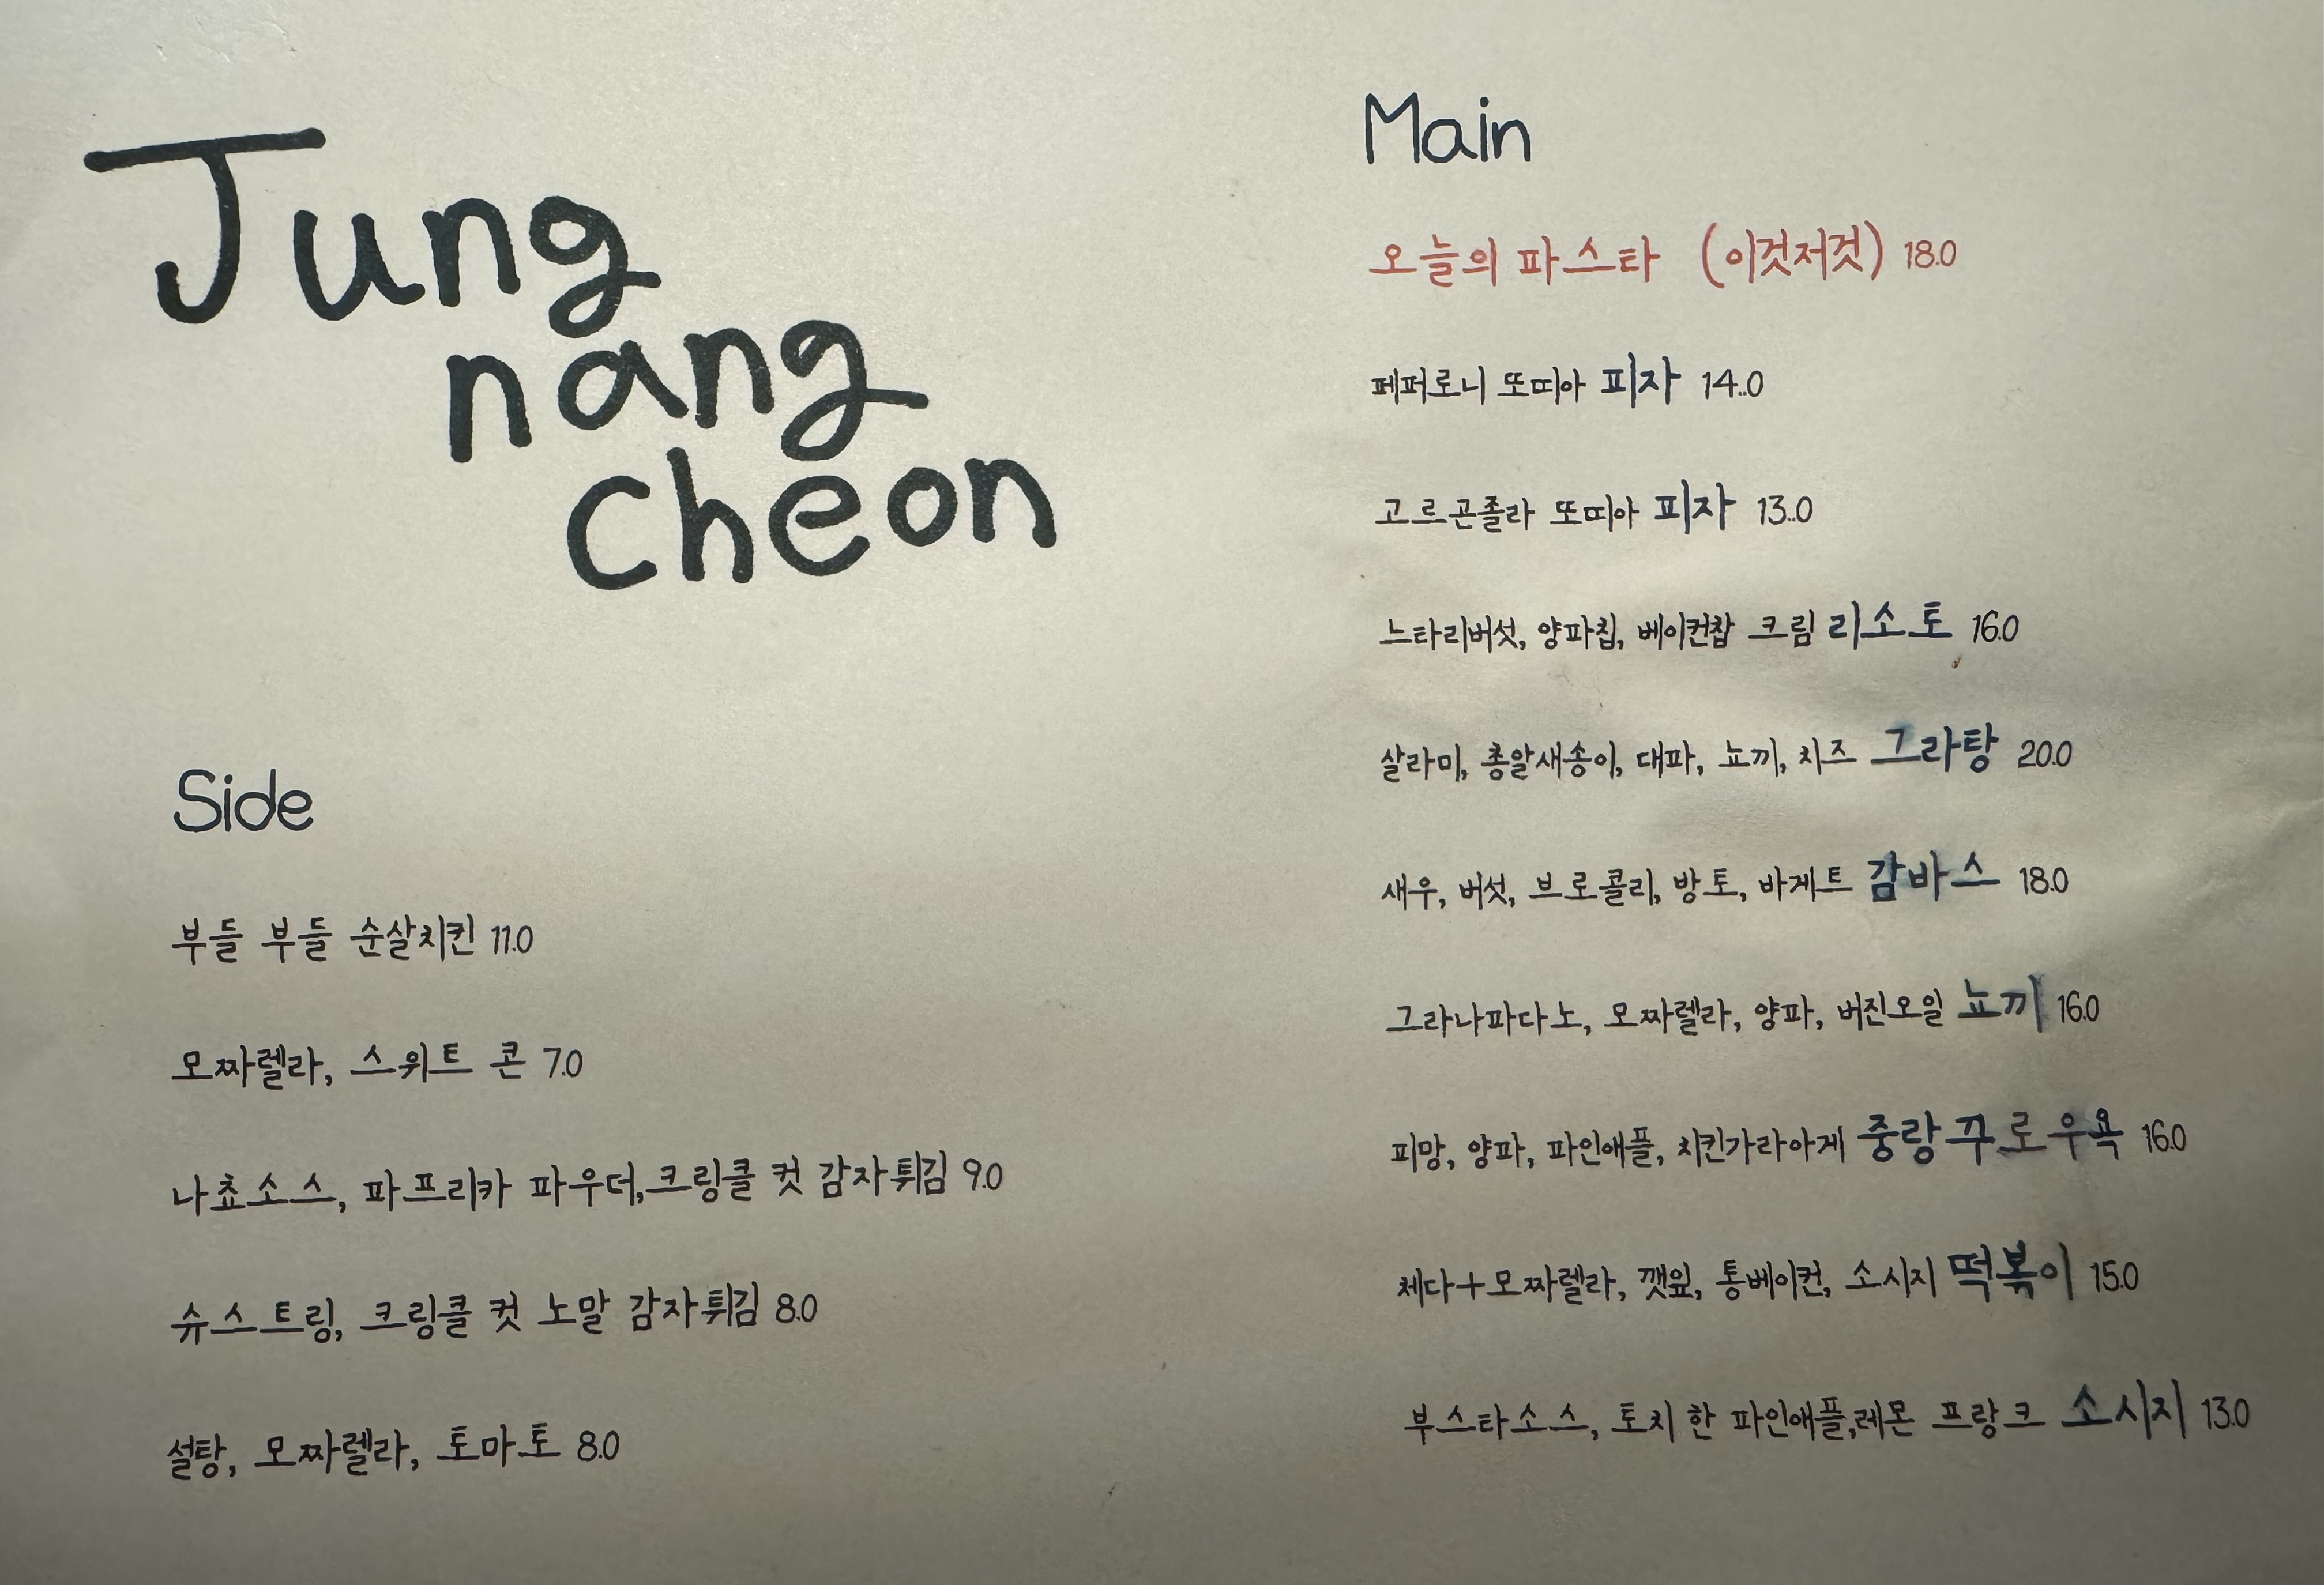 Jung
nang
cheon
Side
부들 부들 순살치킨 11.0
모짜렐라, 스위트 콘 7.0
나쵸소스, 파프리카 파우더,크링클 컷 감자튀김 9.0
슈스트링, 크링클 컷 노말 감자튀김 8.0
설탕, 모짜렐라, 토마토 8.0
Main
오늘의 파스타 (이것저것) 18.0
페퍼로니 또띠아 피자 14.0
고르곤졸라 또띠아 피자 13.0
느타리버섯, 양파칩, 베이컨찹 크림 리소토 16.0
살라미, 총알새송이, 대파, 뇨끼, 치즈 그라탕 20.0
새우, 버섯, 브로콜리, 방토, 바게트 감바스 18.0
그라나파다노, 모짜렐라, 양파, 버진오일 뇨끼 16.0
피망, 양파, 파인애플, 치킨가라아게 중랑 꾸로우욕 16.0
체다+모짜렐라, 깻잎, 통베이컨, 소시지 떡볶이 15.0
부스타소스, 토치 한 파인애플,레몬 프랑크 소시지 13.0